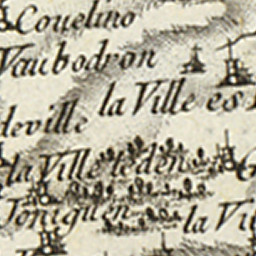 Couelino
Vaubodron
la Ville es
deville
la Ville leden
Joniguen
la Vi